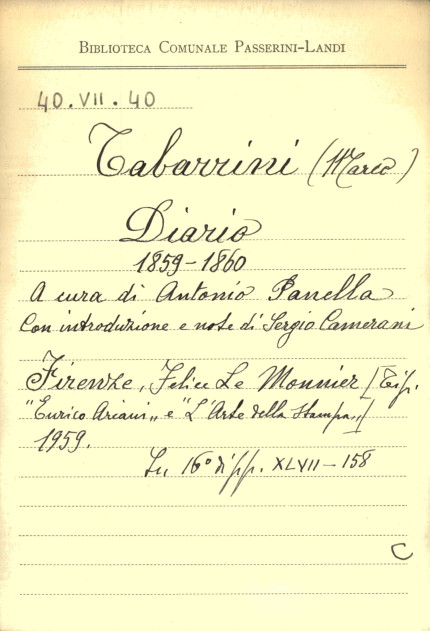 BIBLIOTECA COMUNALE PASSERINI-LANDI
40.VII.40
Tabarrini (Marco)
Diario
1859-1860
A cura di Antonio Panella
Con introduzione e note di Sergio Camerani
Firenze, Felice Le Monnier [Tip.
"Enrico Ariani" e "L'Arte della Stampa"]
1959.
In 16° di pp. XLVII-158
C